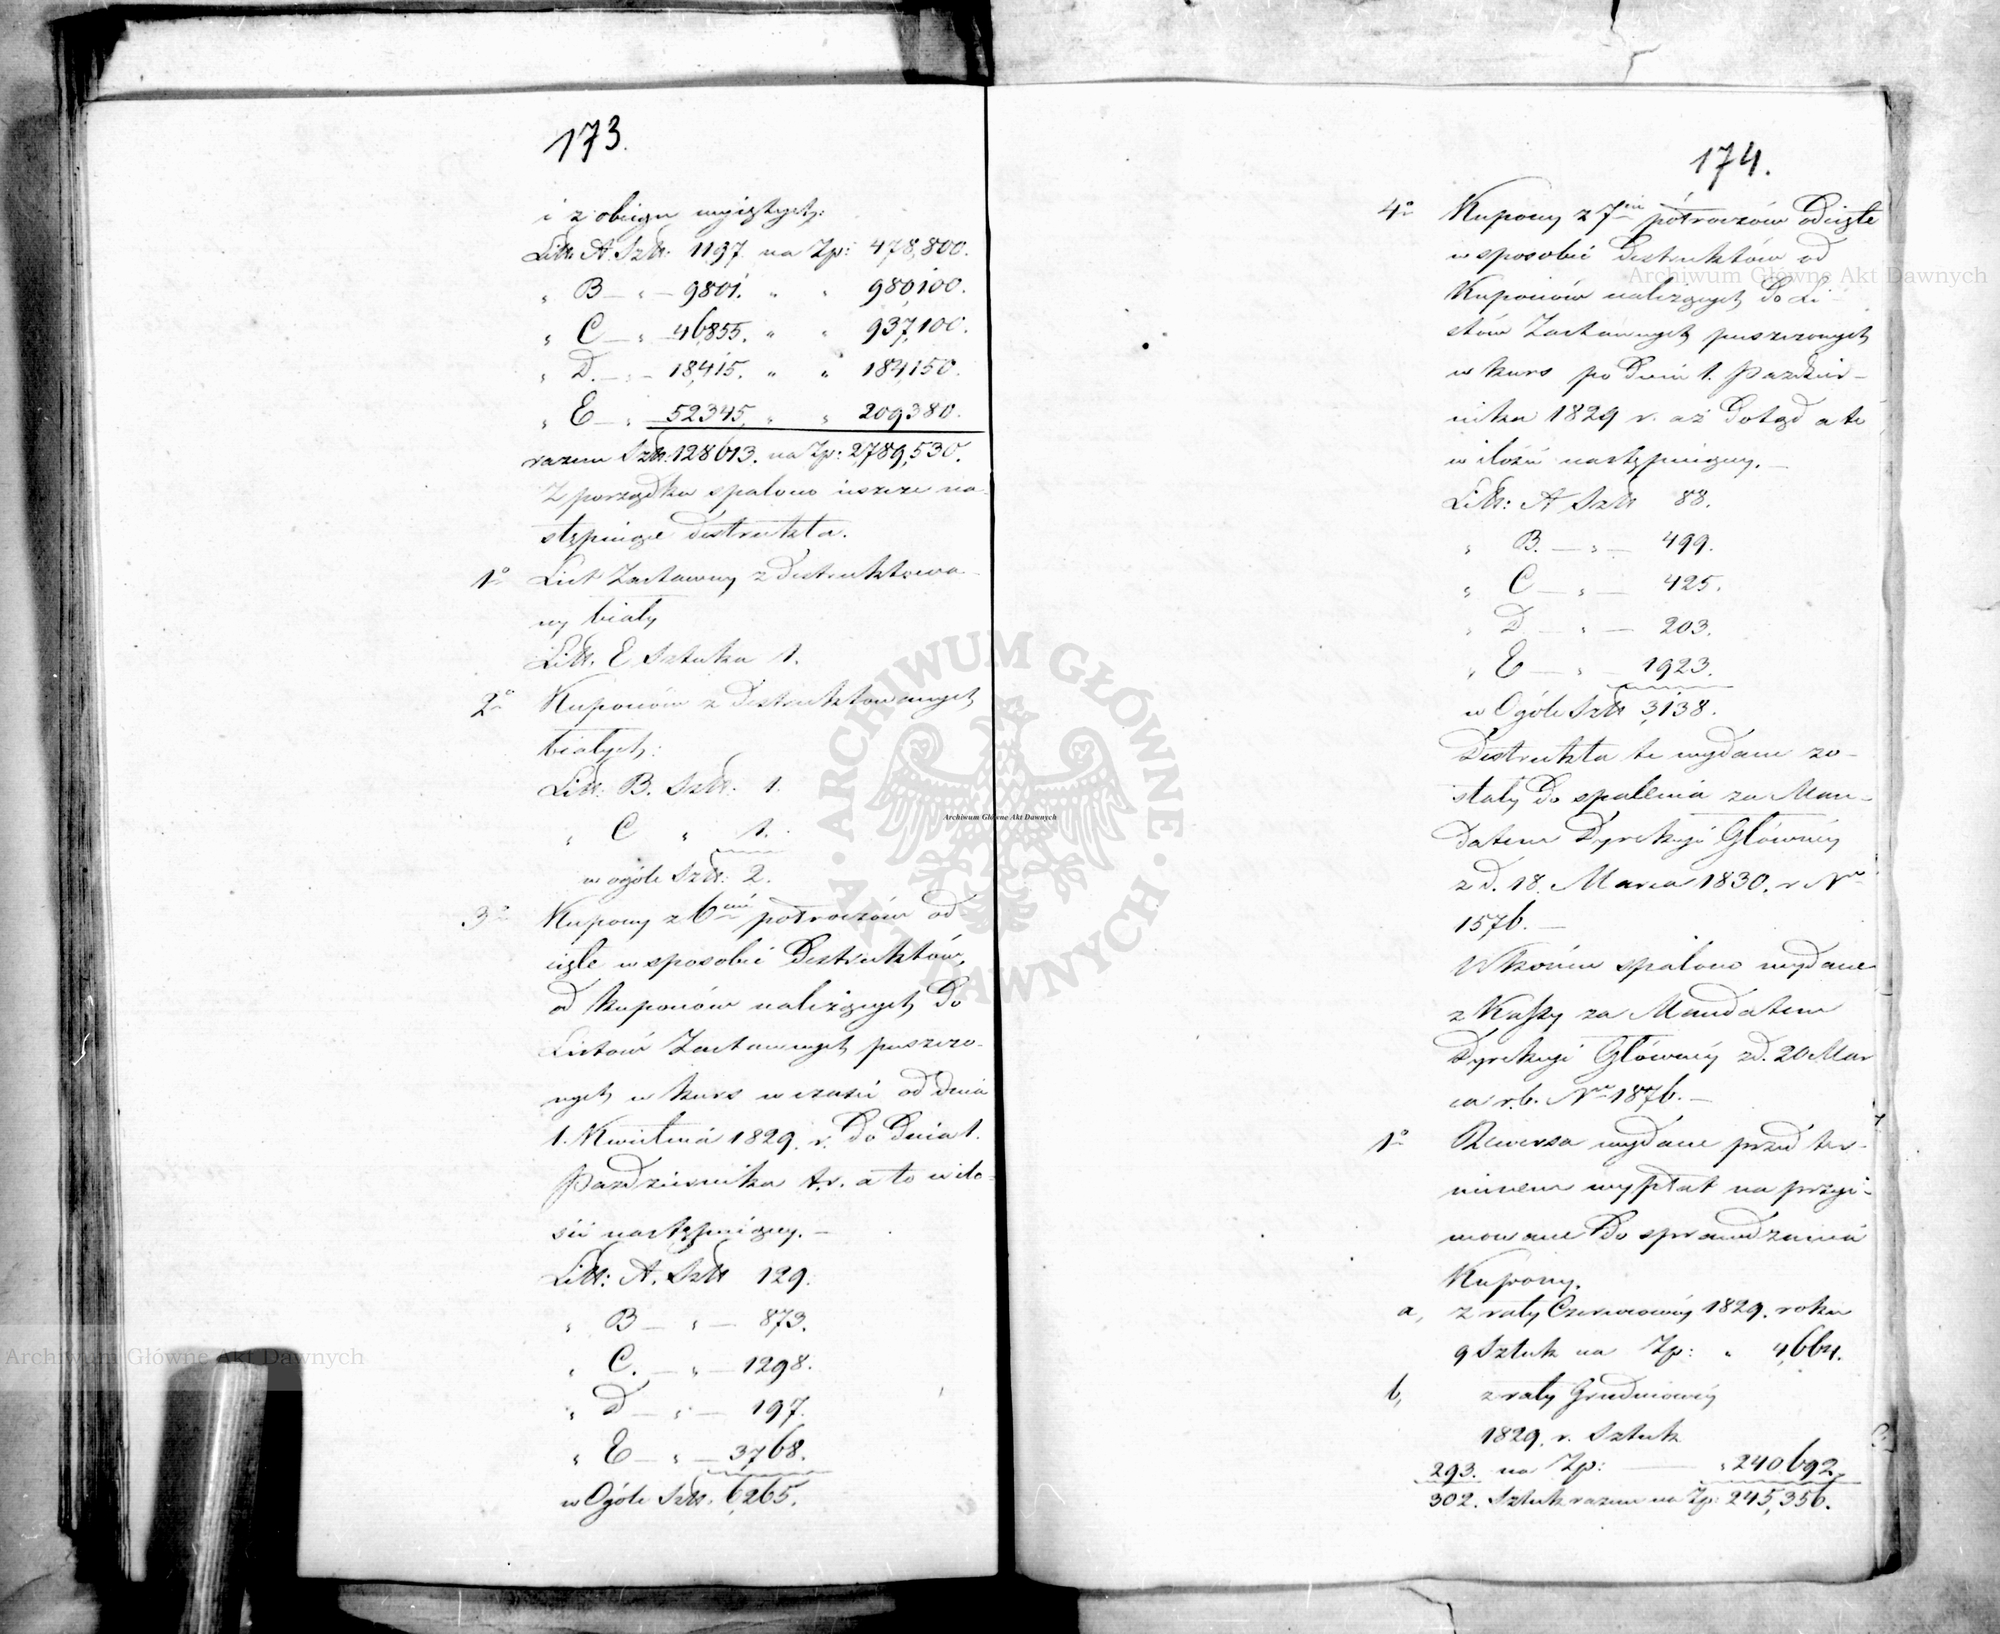 173.
i z obiegu wyiętych:
Littr. A. Sztk. 1197. na Zp: 478,800.
" B — " — 9801. " " 980,100.
" C — " — 46855. " " 937,100.
" D. — " — 18,415. " " 184,150.
" E — " — 52345. " " 209,380.
razem Sztk. 128613. na Zp: 2,789,530.
Z porządku spalono ieszcze na-
stępuiące Destrukta.
1o List Zastawny zdestruktowa-
ny biały
Littr. E Sztuka 1.
2o Kuponów zdestruktowanych
białych:
Littr: B. Sztk: 1.
" C " 1.
w ogóle Sztk: 2.
3o Kupony z 6ciu półroczów od
cięte w sposobie Destruktów,
od kuponów należących do
Listów Zastawnych puszczo-
nych w kurs w czasie od dnia
1. Kwietnia 1829. r. do dnia 1.
Października t.r. a to w ilo-
ści następuiącey. —
Littr: A. Sztk 129.
" B — " — 873.
" C. — " — 1298.
" D — " — 197.
" E — " — 3,768.
w Ogóle Sztk. 6,265.
174.
4o Kupony z 7miu półroczów odcięte
w sposobie Destruktów od
Kuponów należących do Li-
stów Zastawnych puszczonych
w kurs po dniu 1. Paździer-
nika 1829 r. aż dotąd a to
w ilości następuiącey. —
Littr: A Sztk 88.
" B. — " — 499.
" C — " — 425.
" D — " — 203.
" E — " — 1923.
w Ogóle Sztk 3,138.
Destrukta te wydane zo-
stały do spalenia za Man-
datem Dyrekcyi Główney
z d. 18. Marca 1830. r. Nro
1576. —
W końcu spalono wydane
z Kassy za Mandatem
Dyrekcyi Główney z d. 20 Mar
ca r.b. Nro 1876. —
1o Rewersa wydane przed ter-
minem wypłat na przyi-
mowane do sprawdzenia
Kupony.
a, z raty Czerwcowey 1829. roku
9 Sztuk na Zp: " 4,664.
b, z raty Grudniowey
1829. r. Sztuk
293. na Zp: — " 240,692.
302. Sztuk razem na Zp: 245,356.
Archiwum Główne Akt Dawnych
Archiwum Główne Akt Dawnych
Archiwum Główne Akt Dawnych
ARCHIWUM GŁÓWNE · AKT DAWNYCH ·